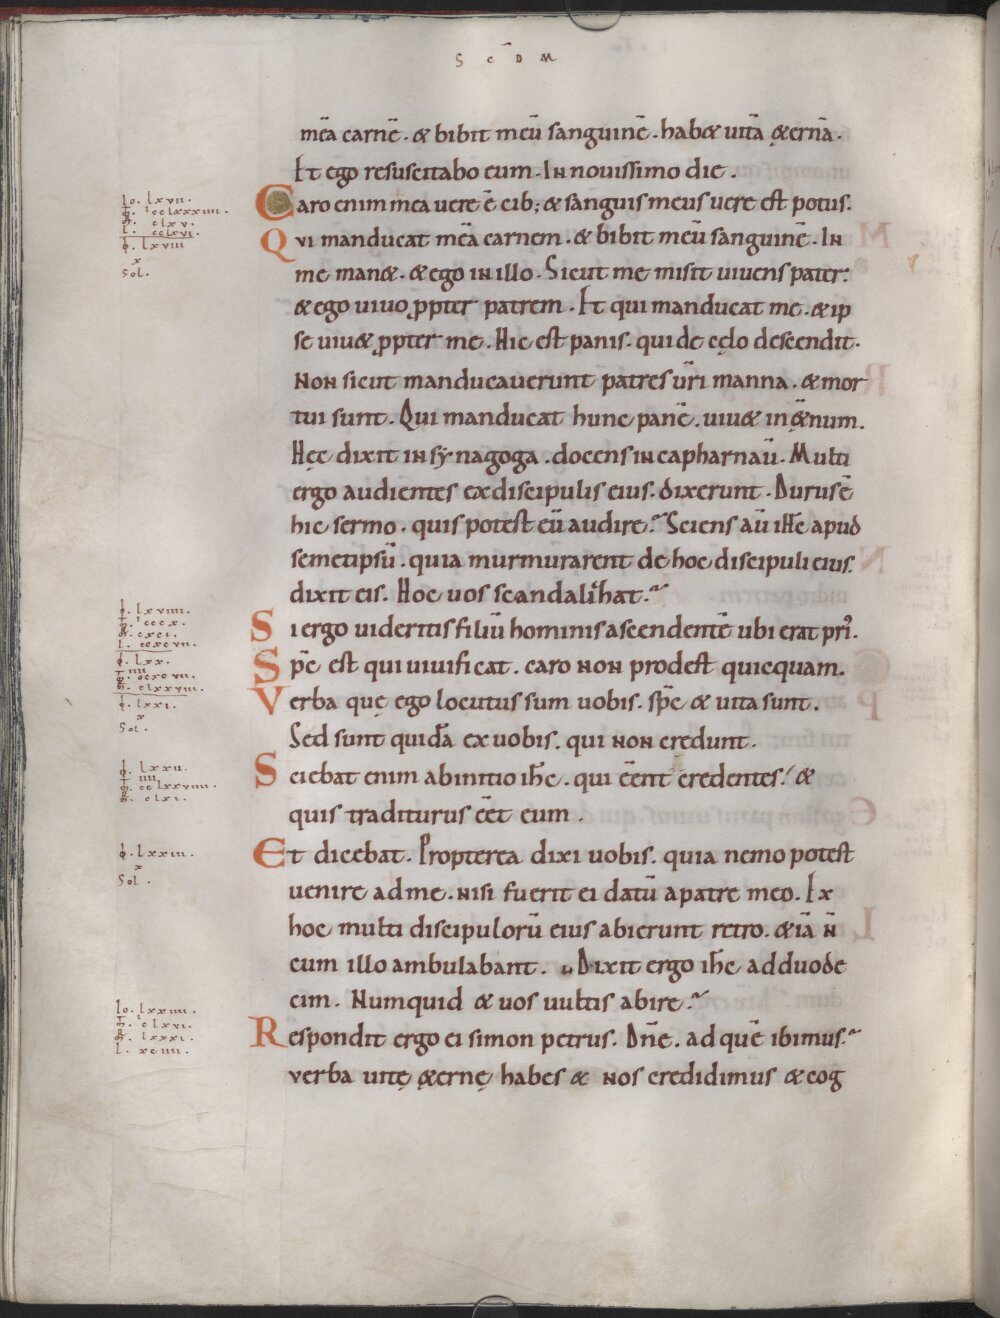 S C̄ D M
meā carnē. & bibit meū sanguinē. hab& uitā ęternā.
Et ego resuscitabo eum. In nouissimo die.
Caro enim mea uere ē cib; & sanguis meus uere est potus.
Qui manducat meā carnem. & bibit meū sanguinē. In
me man&. & ego in illo. Sicut me misit uiuens pater:
& ego uiuo ꝓpter patrem. Et qui manducat me. & ip
se uiu& ꝓpter me. Hic est panis. qui de cęlo descendit.
Non sicut manducauerunt patres ur̄i manna. & mor
tui sunt. Qui manducat hunc panē. uiu& in &̨num.
Hęc dixit in synagoga. docens in capharnaū. Multi
ergo audientes ex discipulis eius. dixerunt. Durus ē
hic sermo. quis potest eū audire? Sciens au ih̄c apud
semetipsū. quia murmurarent de hoc discipuli eius.
dixit eis. Hoc uos scandalizat?
Si ergo uideritis filiū hominis ascendentē ubi erat pri.
Sp̄c est qui uiuificat. caro non prodest quicquam.
Verba quę ego locutus sum uobis. sp̄c & uita sunt.
Sed sunt quidā ex uobis. qui non credunt.
Sciebat enim ab initio ih̄c. qui cēnt credentes. &
quis traditurus cēt eum.
Et dicebat. Propterea dixi uobis. quia nemo potest
uenire ad me. nisi fuerit ei datū a patre meo. Ex
hoc multi discipulorū eius abierunt retro. & iā n̄
cum illo ambulabant. Dixit ergo ih̄c ad duode
cim. Numquid & uos uultis abire?
Respondit ergo ei simon petrus. Dn̄e. ad quē ibimus?
verba uitę &̨ernę habes & nos credidimus & cog
Io. lxvii.
lxviii
x
Sol.
lxviiii.
lxx.
lxxi.
x
Sol.
lxxii.
clxi.
lxxiii.
x
Sol.
Io. lxxiiii.
clxvi.
lxxxi.
l. xciiii.